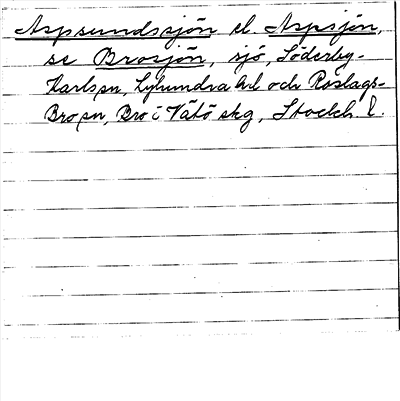 Aspsundssjön el. Aspsjön,
se Brosjön, sjö, Söderby-
Karls sn, Lyhundra hd och Roslags-
Bro sn, Bro i Vätö skg, Stockh. l.